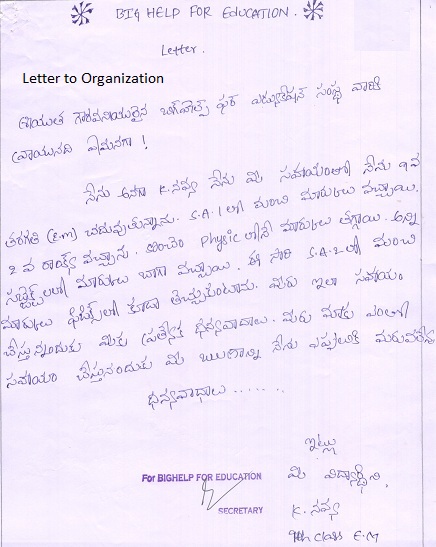 BIG HELP FOR EDUCATION.
Letter.
Letter to Organization
శ్రీయుత గౌరవనీయులైన బిగ్‌హెల్ప్ ఫర్ ఎడ్యుకేషన్ సంస్థ వారికి
వ్రాయునది ఏమనగా !
నేను అనగా K.నవ్య నేను మీ సహాయంతో నేను 9వ
తరగతి (E.m) చదువుతున్నాను. S.A-1లో మంచి మార్కులు వచ్చాయి.
2 వ ర్యాంక్ వచ్చాను. కొంచెం Physicలోనే మార్కులు తగ్గాయి. అన్ని
సబ్జెక్ట్స్‌లలో మార్కులు బాగా వచ్చాయి. ఈ సారి S.A-2లో మంచి
మార్కులు ఫిజిక్స్‌లో కూడా తెచ్చుకుంటాను. మీరు ఇలా సహాయం
చేస్తున్నందుకు మీకు ప్రత్యేక ధన్యవాదాలు. మీరు మాకు ఎంతో
సహాయం చేస్తునందుకు మీ ఋణాన్ని నేను ఎప్పటికి మరువలేను
ధన్యవాదాలు......
ఇట్లు
మీ విద్యార్థిని,
K. నవ్య
9th class E.M
For BIGHELP FOR EDUCATION
SECRETARY